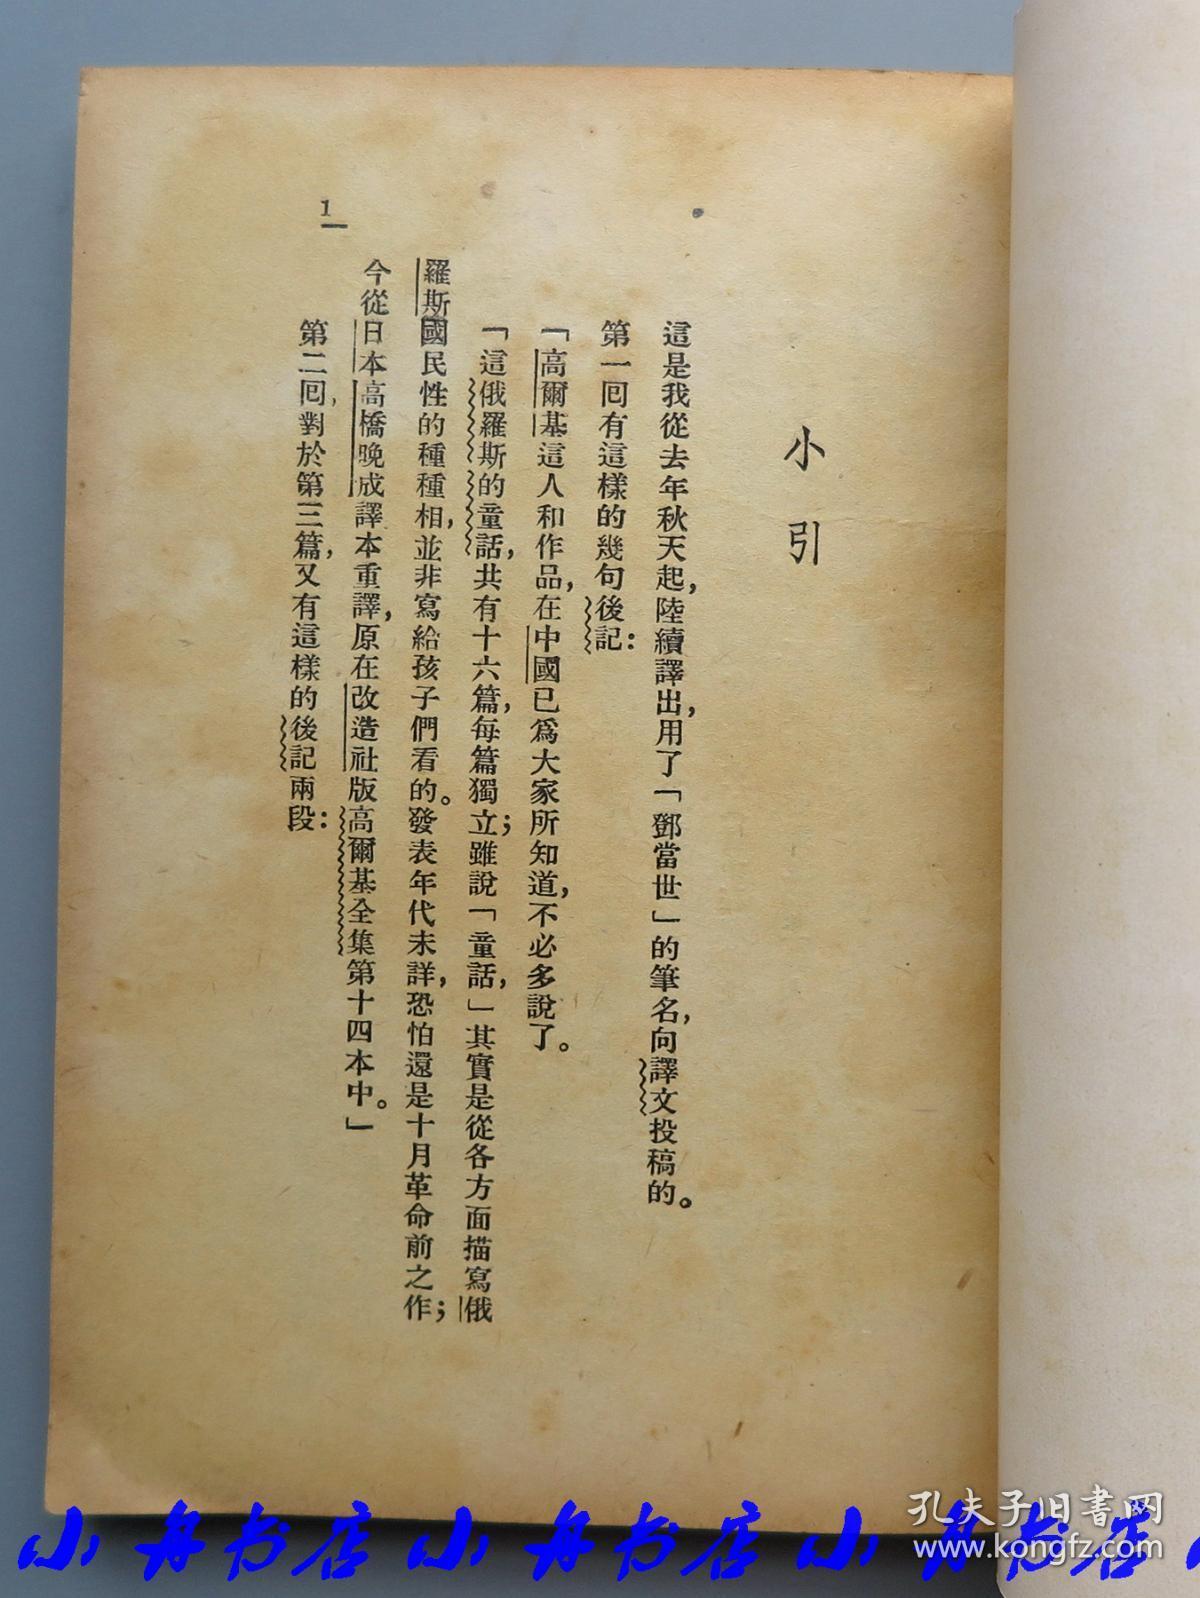 小引
這是我從去年秋天起，陸續譯出，用了「鄧當世」的筆名，向譯文投稿的。
第一回有這樣的幾句後記：
「高爾基這人和作品，在中國已爲大家所知道，不必多說了。
「這俄羅斯的童話，共有十六篇，每篇獨立；雖說「童話，」其實是從各方面描寫俄
羅斯國民性的種種相，並非寫給孩子們看的。發表年代未詳，恐怕還是十月革命前之作；
今從日本高橋晚成譯本重譯，原在改造社版高爾基全集第十四本中。」
第二回，對於第三篇，又有這樣的後記兩段：
1
孔夫子旧書网
www.kongfz.com
小舟书店 小舟书店 小舟书店 小